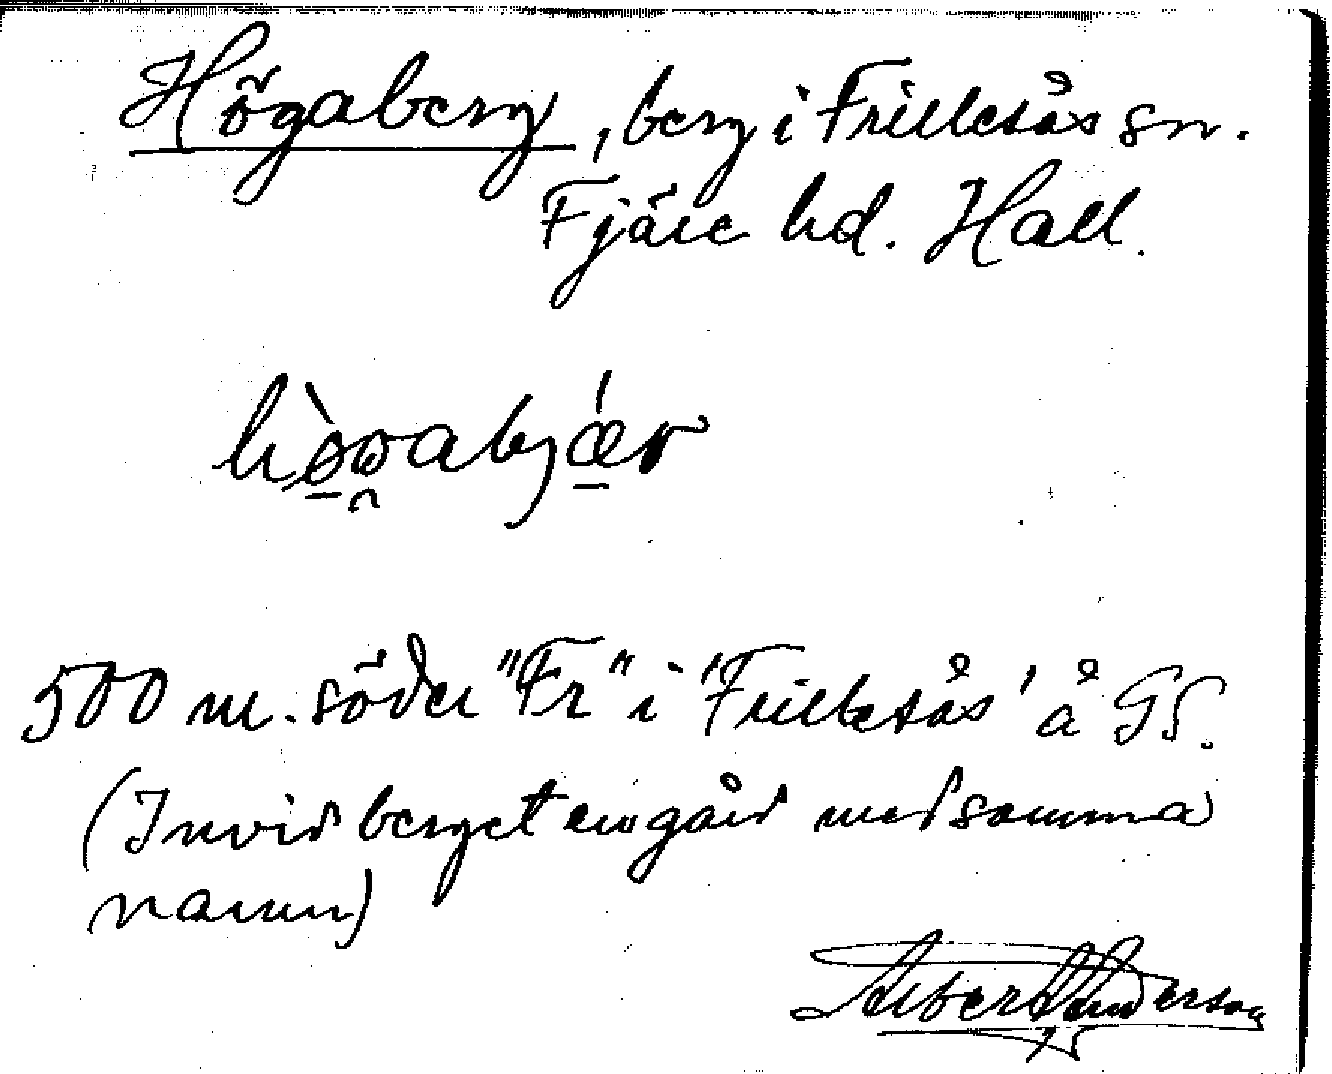 Högaberg, berg i Frillesås sn.
Fjäre hd. Hall.
500 m. söder "Fr" i 'Frillesås' å GS.
(Invid berget en gård med samma
namn)
Albert Anderson